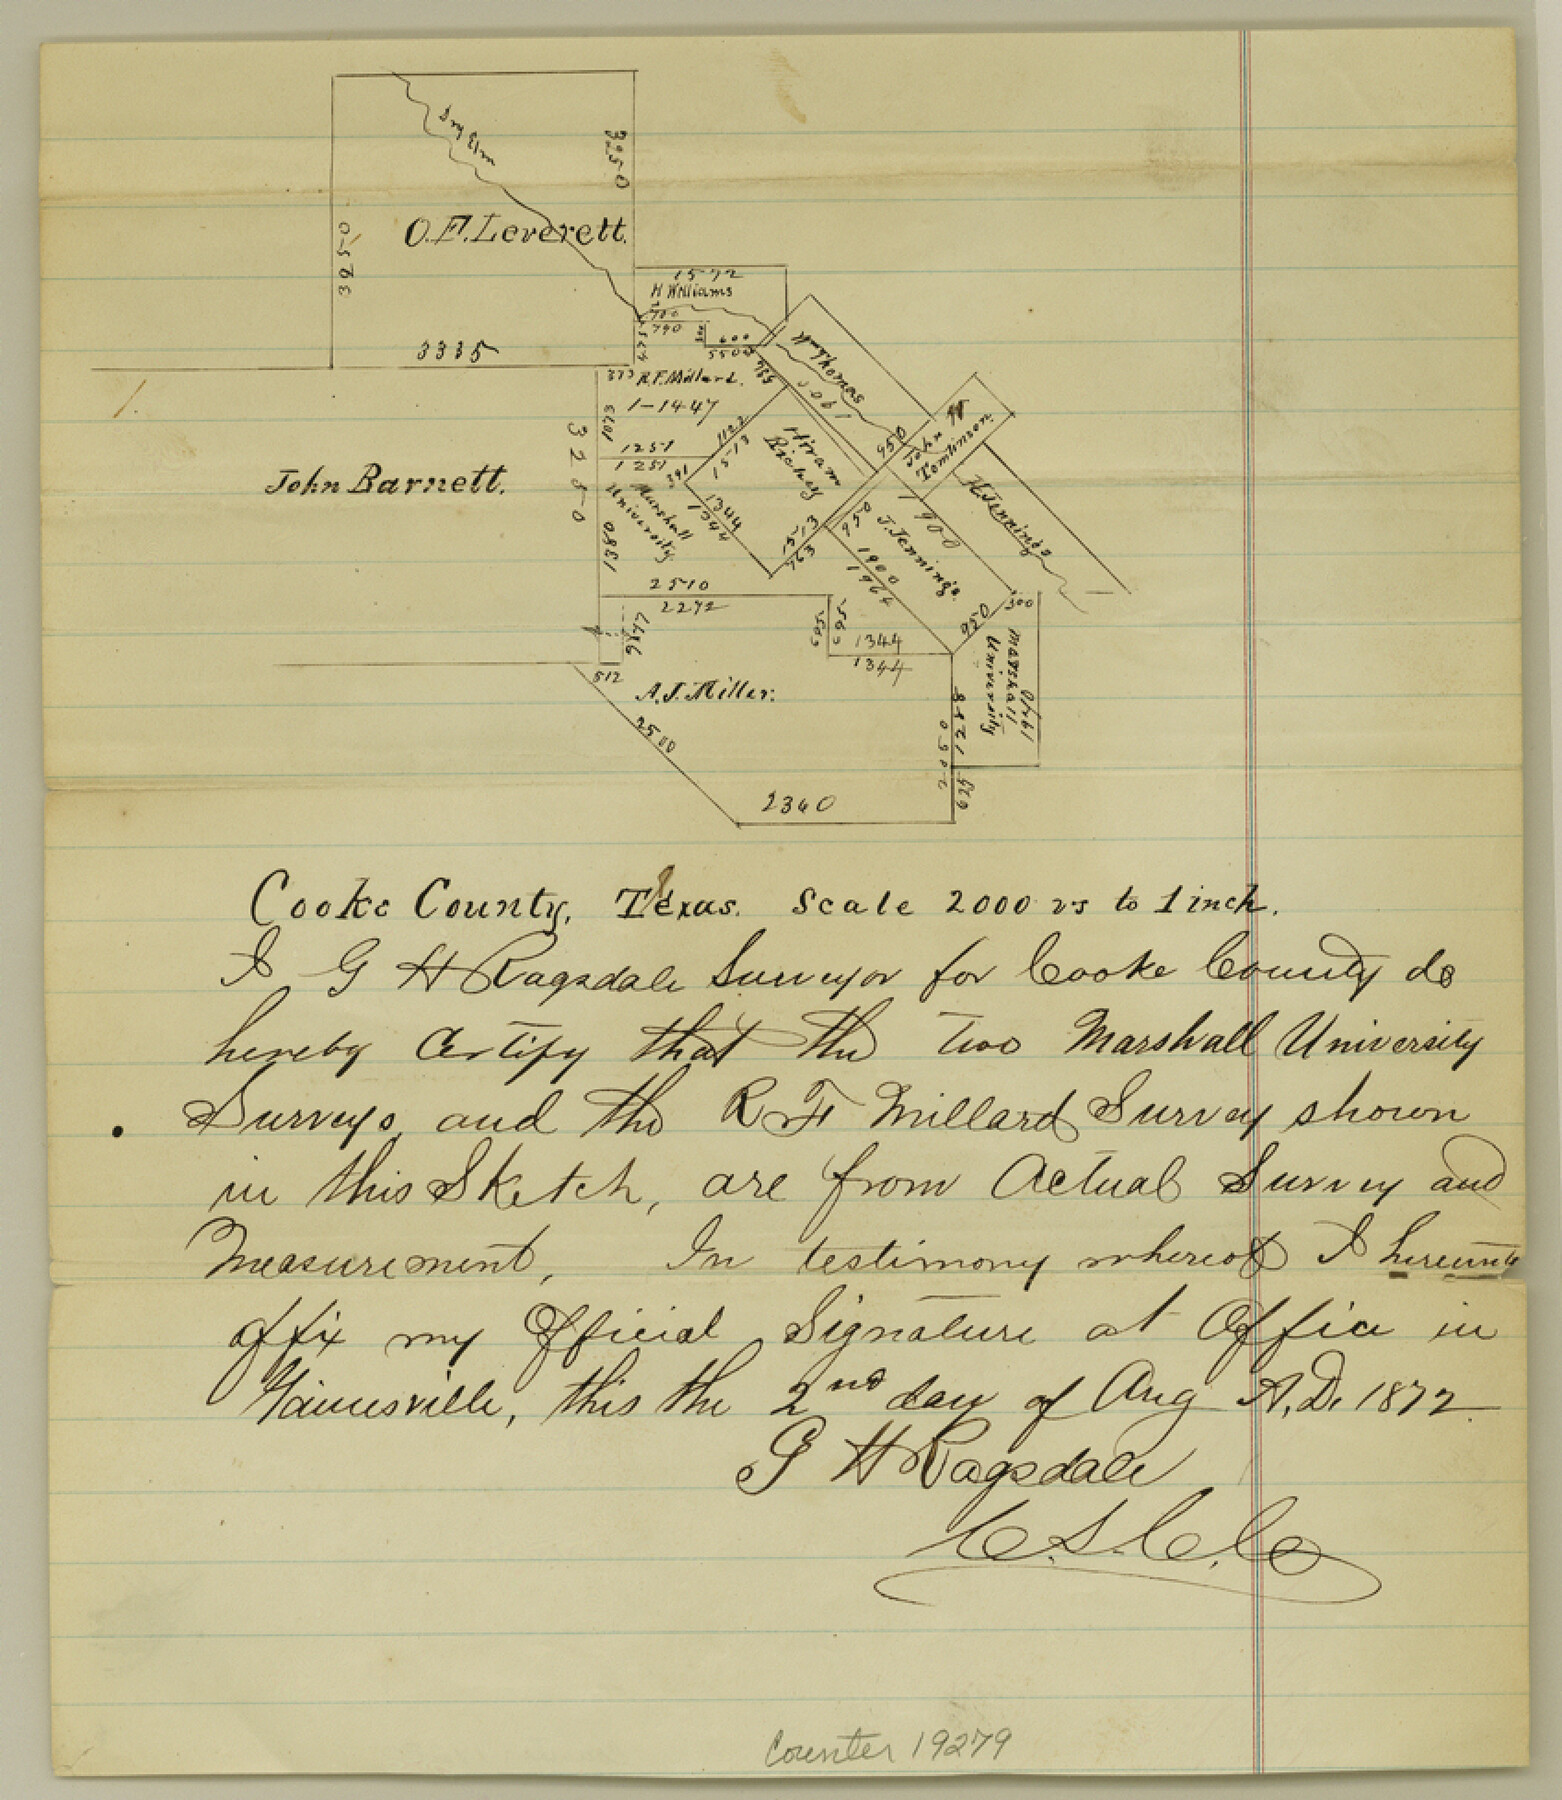 Dry Elm
3250
3250
O.F. Leverett.
3335
1572
H Williams
700
790
600
550
Wm Thomas
1900
373 R.F. Millard.
1-1447
1073
1251
1251
1122
1513
391
Hiram
Richey
950
John W
Tomlinson.
H. Jennings
3250
John Barnett.
Marshall
University
1880
1344
1344
1513
763
950
1900
J. Jennings.
1900
1964
950
300
2510
2272
695
695
1344
1344
512
A.J. Miller.
2500
Marshall
University
1970
1258
2050
625
2360
Cooke County, Texas. Scale 2000 vs to 1 inch.
I G H Ragsdale Surveyor for Cooke County do
hereby Certify that the two Marshall University
Surveys, and the R F Millard Survey shown
in this Sketch, are from Actual Survey and
Measurement, In testimony whereof I hereunto
affix my Official Signature at Office in
Gainesville, this the 2nd day of Aug A.D. 1872
G H Ragsdale
C.S.C.C.
Counter 19279